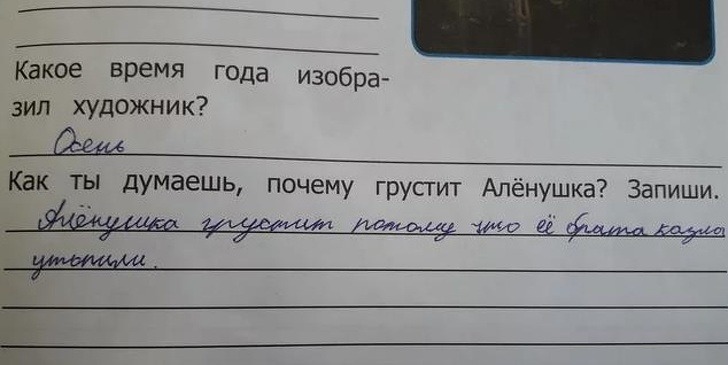 Какое время года изобра-
зил художник?
Осень
Как ты думаешь, почему грустит Алёнушка? Запиши.
Алёнушка грустит потому что её брата казла
утопили.